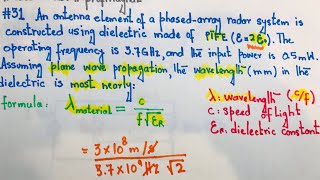 #31 An antenna element of a phased-array radar system is
constructed using dielectric made of PTFE (ε=2ε₀). The
operating frequency is 3.7GHz, and the input power is 0.5mW.
Assuming plane wave propagation, the wavelength (mm) in the
dielectric is most nearly:
formula: λmaterial = c / f√εR
λ: wavelength (c/f)
c: speed of light
εR: dielectric constant
= 3×10⁸ m/s / 3.7×10⁹ Hz √2